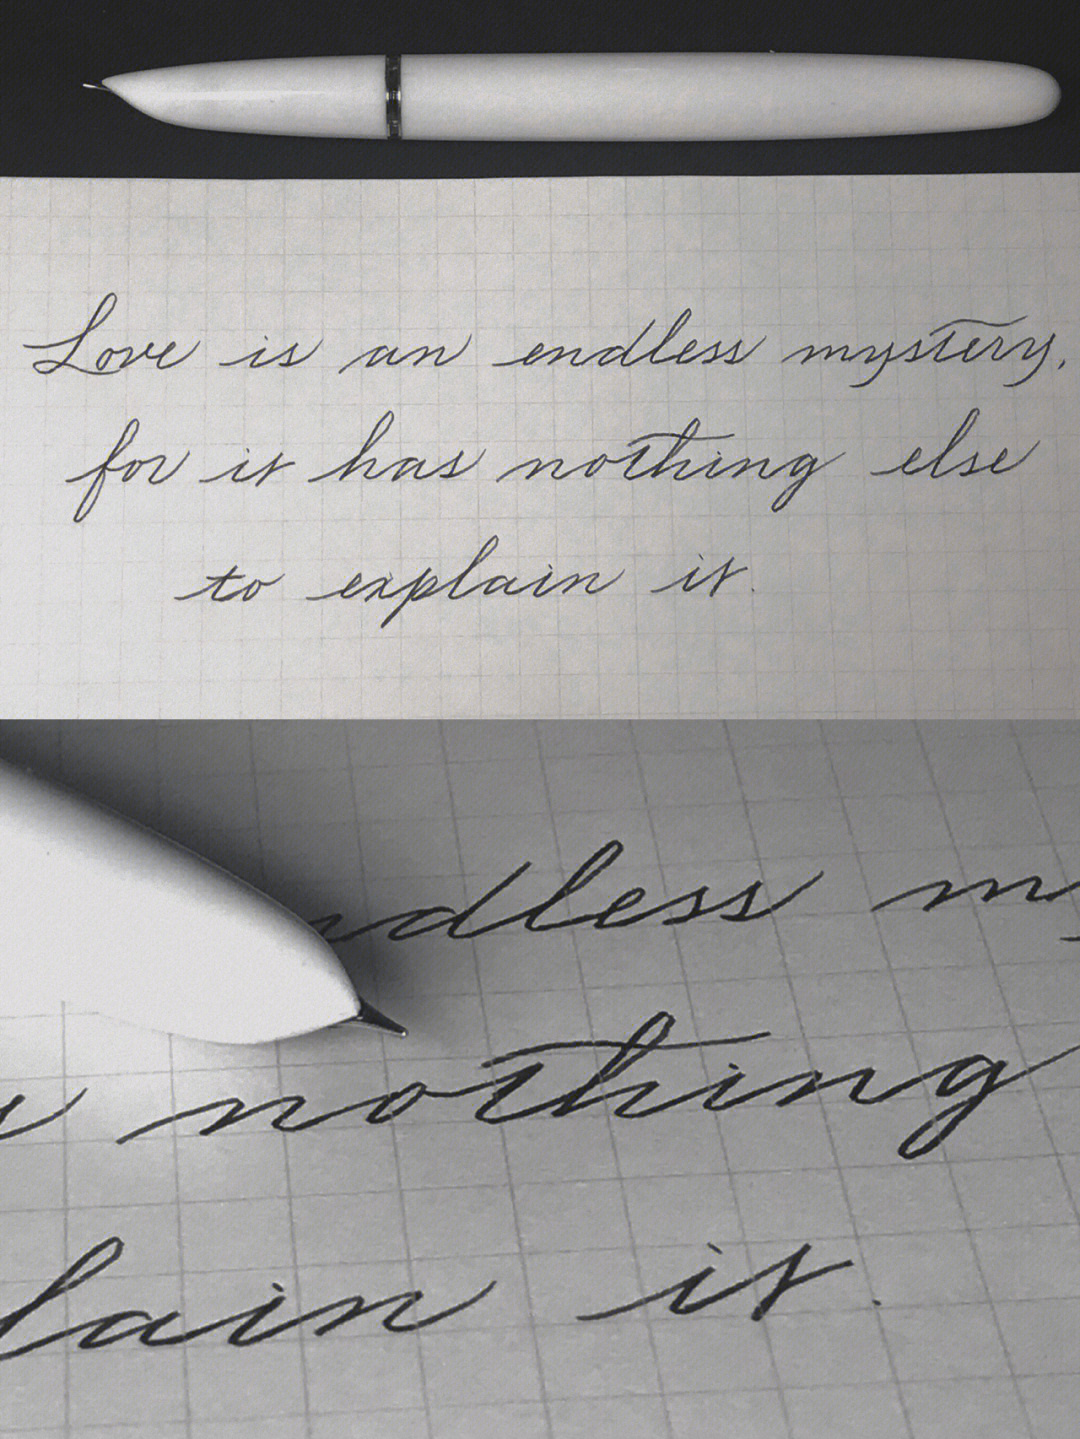 Love is an endless mystery,
for it has nothing else
to explain it.
ndless my
nothing
lain it.